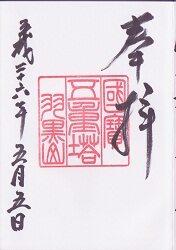 奉拝
國寶
五重塔
羽黒山
二十六年五月五日